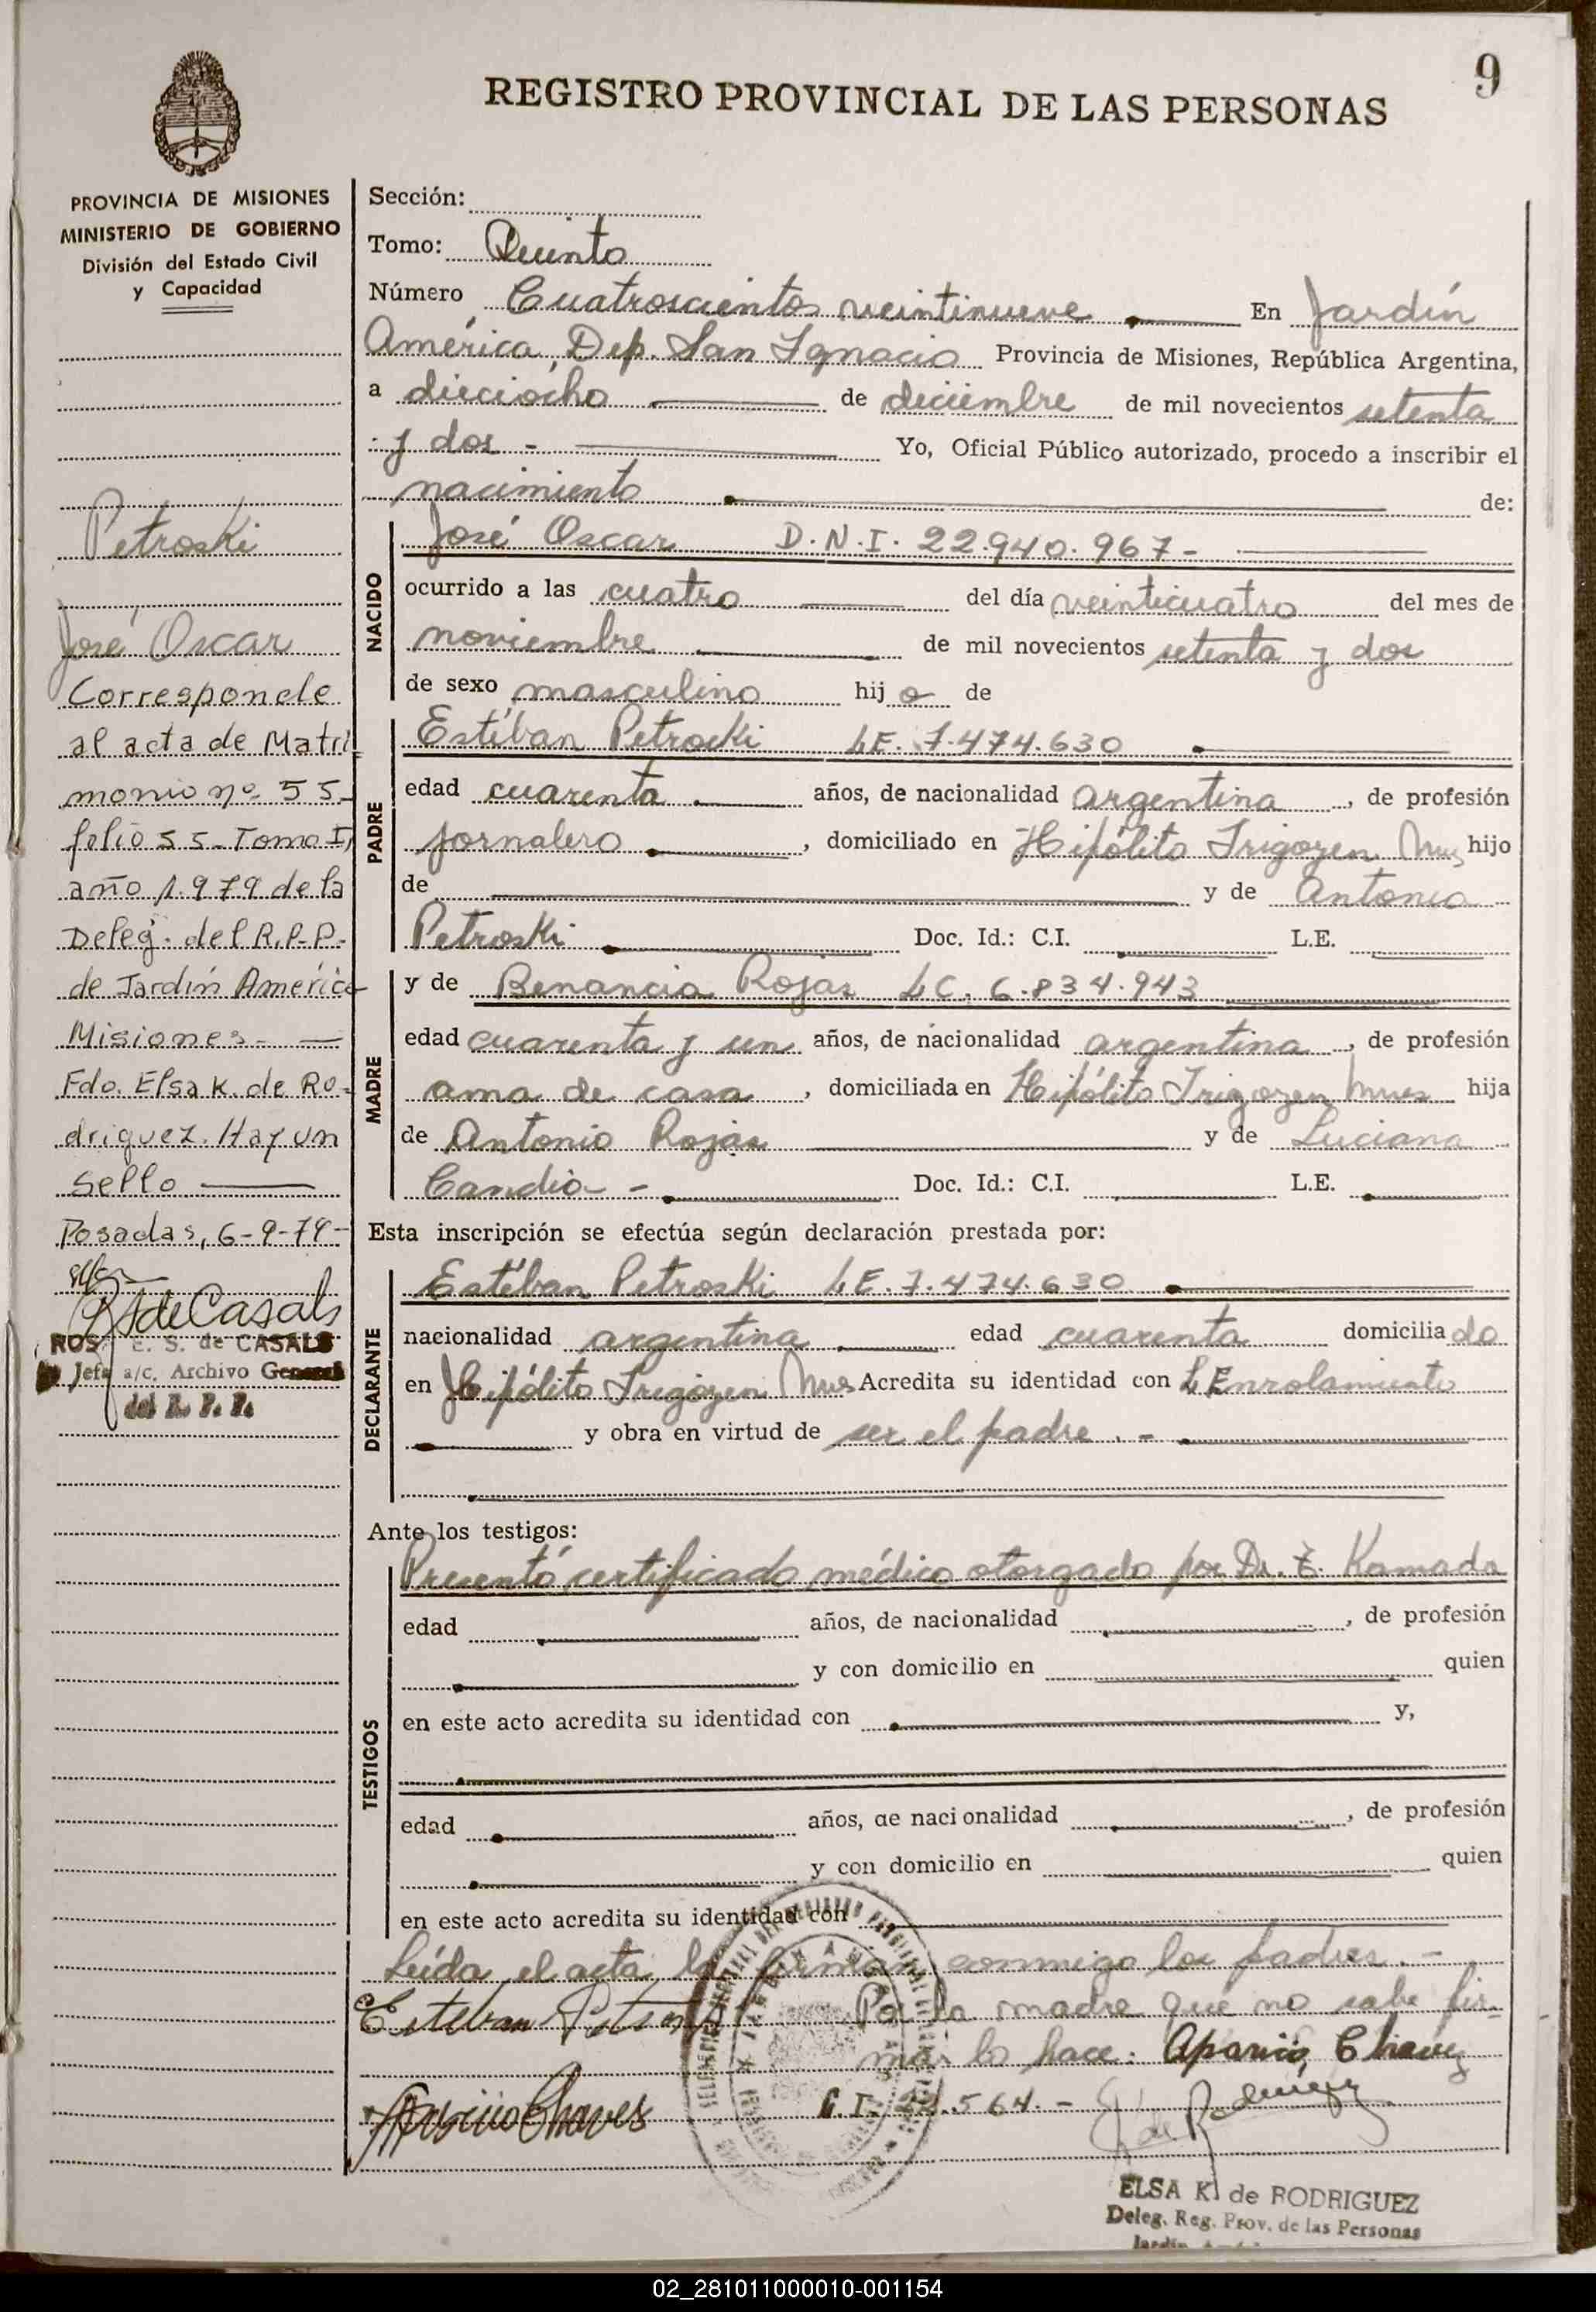 9
REGISTRO PROVINCIAL DE LAS PERSONAS
PROVINCIA DE MISIONES
MINISTERIO DE GOBIERNO
División del Estado Civil
y Capacidad
Petroski
José Oscar
Corresponde
al acta de Matri-
monio nº 55-
folio 55-Tomo I,
año 1.979 de la
Deleg. del R.P.P.
de Jardín América
Misiones-
Fdo. Elsa K. de Ro-
driguez. Hay un
Sello
Posadas, 6-9-79-
de Casals
ROS E. S. de CASALS
Jefe a/c. Archivo General
del R. P. P.
Sección:
Tomo: Quinto
Número Cuatroscientos veintinueve En Jardín
América, Dep. San Ignacio Provincia de Misiones, República Argentina,
a dieciocho de diciembre de mil novecientos setenta
y dos - Yo, Oficial Público autorizado, procedo a inscribir el
nacimiento de:
NACIDO
José Oscar D.N.I. 22.940.967-
ocurrido a las cuatro del día veinticuatro del mes de
noviembre de mil novecientos setenta y dos
de sexo masculino hijo de
PADRE
Estéban Petroski LE. 7.474.630
edad cuarenta años, de nacionalidad argentina, de profesión
jornalero, domiciliado en Hipólito Irigoyen Mnes hijo
de y de Antonio
Petroski Doc. Id.: C.I. L.E.
MADRE
y de Benancia Rojas LC. 6.834.943
edad cuarenta y un años, de nacionalidad argentina, de profesión
ama de casa, domiciliada en Hipólito Irigoyen Mnes hija
de Antonio Rojas y de Luciana
Candia - Doc. Id.: C.I. L.E.
Esta inscripción se efectúa según declaración prestada por:
DECLARANTE
Estéban Petroski LE. 7.474.630
nacionalidad argentina edad cuarenta domiciliado
en Hipólito Irigoyen Mnes Acredita su identidad con L Enrolamiento
y obra en virtud de ser el padre. -
Ante los testigos:
TESTIGOS
Presentó certificado médico otorgado por Dr. Z. Kamada
edad años, de nacionalidad , de profesión
y con domicilio en quien
en este acto acredita su identidad con y,
edad años, de nacionalidad , de profesión
y con domicilio en quien
en este acto acredita su identidad con
Leída el acta la firman conmigo los padres. -
Esteban Petroski Por la madre que no sabe fir-
mar lo hace: Aparicio Chavez
Aparicio Chaves C.I. 22.564. - de Rodriguez
ELSA K. de RODRIGUEZ
Deleg. Reg. Prov. de las Personas
Jardín
02_281011000010-001154